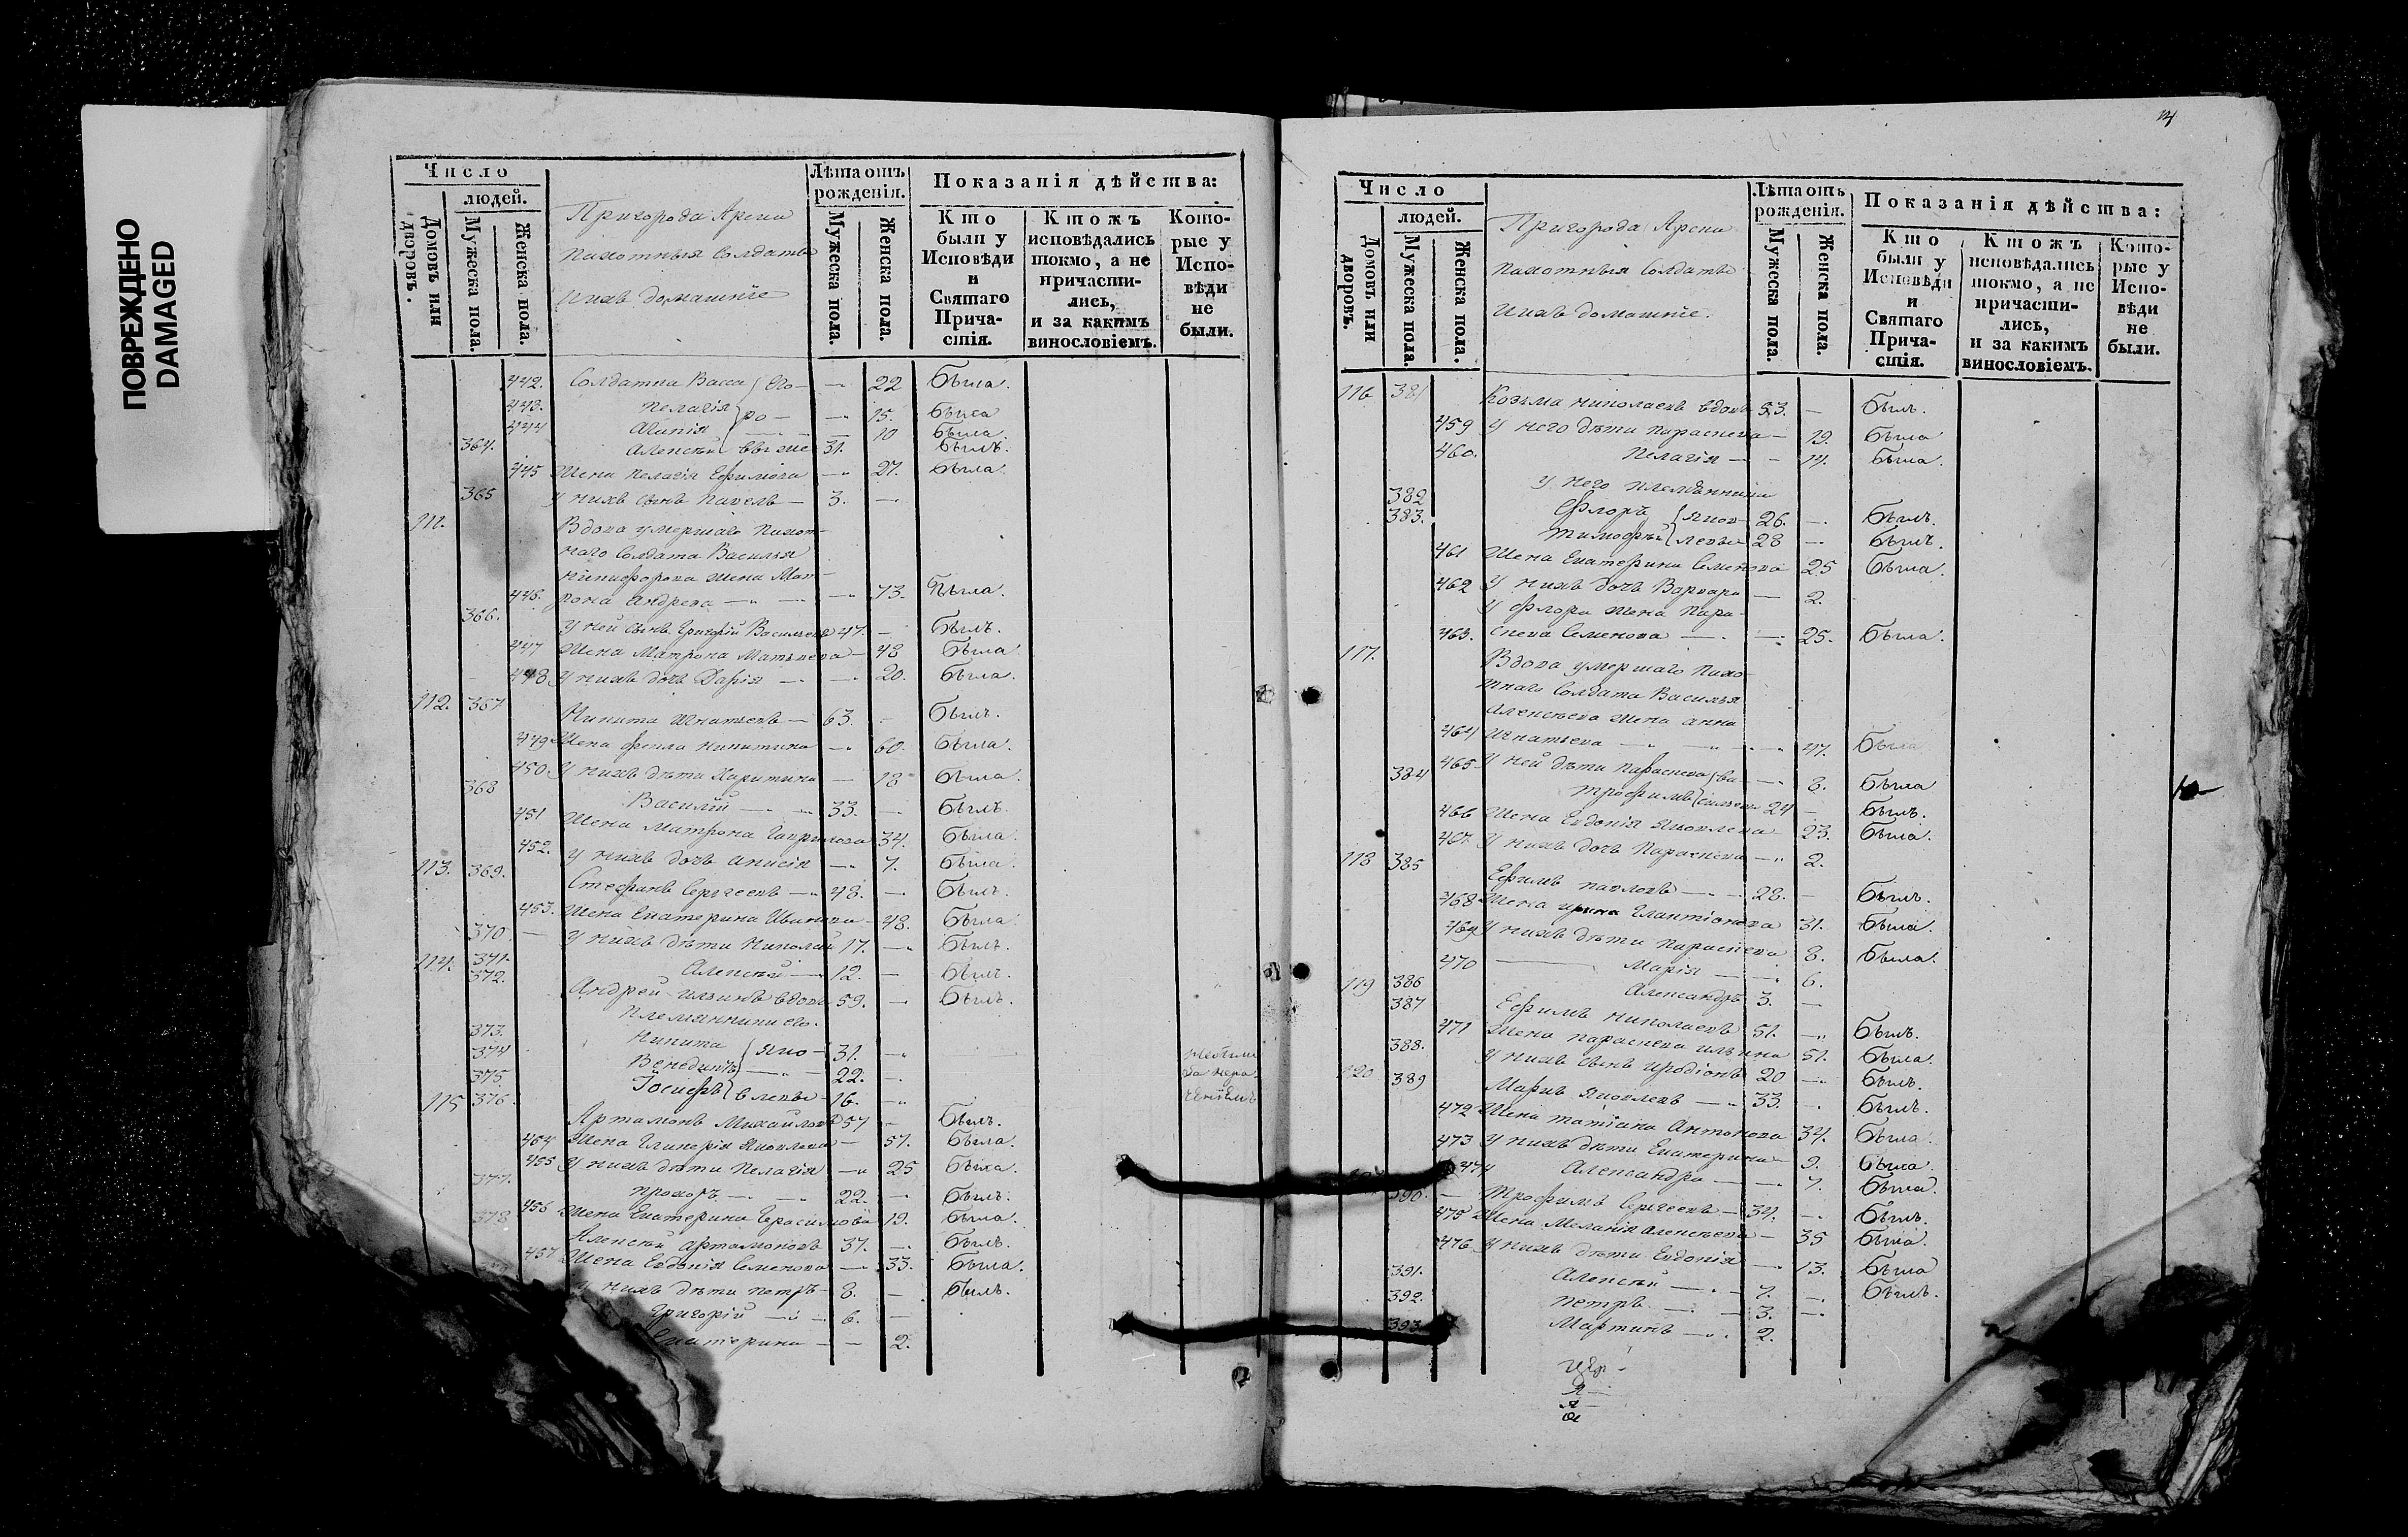 ПОВРЕЖДЕНО
DAMAGED
Число
людей.
Домовъ или дворовъ.
Мужеска пола.
Женска пола.
Пригорода Арска
пахотныя солдаты
и ихъ домашніе
Лѣта отъ рожденія.
Мужеска пола.
Женска пола.
Показанія дѣйства:
Кто были у Исповѣди и Святаго Причастія.
Ктожъ исповѣдались токмо, а не причастились, и за какимъ винословіемъ.
Которые у Исповѣди не были.
442. Солдатка Васса 22 была.
443. Пелагія 15. была
444 10 была
364. Алексѣй 31. былъ.
445 Жена Пелагія Ефимова 27. была.
365 У нихъ сынъ Павелъ 3.
111. Вдова умершаго пахот-
наго солдата Василья
Никифорова жена Мат-
446. рона Андрева 73. была.
366. У ней сынъ Григорій Васильевъ 47. былъ.
447 Жена Матрона Матвѣева 48 была
448 У нихъ дочь Дарія 20. была.
112. 367 Никита Игнатьевъ 63. былъ.
449 Жена Фекла Никитина 60. была.
450. У нихъ дѣти Харитина 18 была.
368 Василій 33. былъ.
451 Жена Матрона Гаврилова 34. была.
452. У нихъ дочь Анисія 7. была.
113. 369. Стефанъ Сергеевъ 48. былъ.
453. Жена Екатерина Иванова 48. была
370 У нихъ дѣти Николай 17. былъ.
114. 371. Алексѣй 12. былъ.
372. Андрей Ильинъ вдовъ 59. былъ.
Племянники его.
373. Никита 31.
374 Венедиктъ 22.
375 Іосифъ 16.
115 376. Артамонъ Михайловъ 57 былъ.
454 Жена Гликерія Яковлева 57. была.
455 У нихъ дѣти Пелагія 25 была.
377. Прохоръ 22. былъ.
456 Жена Екатерина Герасимова 19. была.
378 Алексѣй Артамоновъ 37. былъ.
457 Жена Евдокія Семенова 33. была.
У нихъ дѣти Петръ 8. былъ.
Григорій 6.
Екатерина 2.
Число
людей.
Домовъ или дворовъ.
Мужеска пола.
Женска пола.
Пригорода Арска
пахотныя солдаты
и ихъ домашніе.
Лѣта отъ рожденія.
Мужеска пола.
Женска пола.
Показанія дѣйства:
Кто были у Исповѣди и Святаго Причастія.
Ктожъ исповѣдались токмо, а не причастились, и за какимъ винословіемъ.
Которые у Исповѣди не были.
116 381 Козьма Николаевъ вдовъ 53. былъ.
459 У него дѣти Параскева 19. была
460. Пелагія 14. была.
У него племянники
382 Флоръ 26. былъ.
383. Тимофѣй 28 былъ.
461 Жена Екатерина Семенова 25 была.
462 У нихъ дочь Варвара 2.
У Флора жена Пара-
463. скева Семенова 25. была.
117. Вдова умершаго пахо-
тнаго солдата Василья
Алексѣева жена Анна
464 Игнатьева 47. была
465 У ней дѣти Параскева 8. была
384 Трофимъ 24 былъ.
466 Жена Евдокія Яковлева 23. была.
467 У нихъ дочь Параскева 2.
118 385 Ефимъ Павловъ 28. былъ.
468 Жена Ирина Галактіонова 31. была.
469 У нихъ дѣти Параскева 8. была.
470 Марія 6.
386 Александръ 3.
119 387 Ефимъ Николаевъ 51. былъ.
471 Жена Параскева Ильина 51. была.
388. У нихъ сынъ Иродіонъ 20 былъ.
120 389 Маркъ Яковлевъ 33. былъ.
472 Жена Татіана Антонова 34. была.
473 У нихъ дѣти Екатерина 9. была.
474 Александра 7. была.
390. Трофимъ Сергеевъ 34. былъ.
475 Жена Меланія Алексѣева 35 была.
476 У нихъ дѣти Евдокія 13. была
391. Алексѣй 7. былъ.
392. Петръ 3.
393 Мартинъ 2.